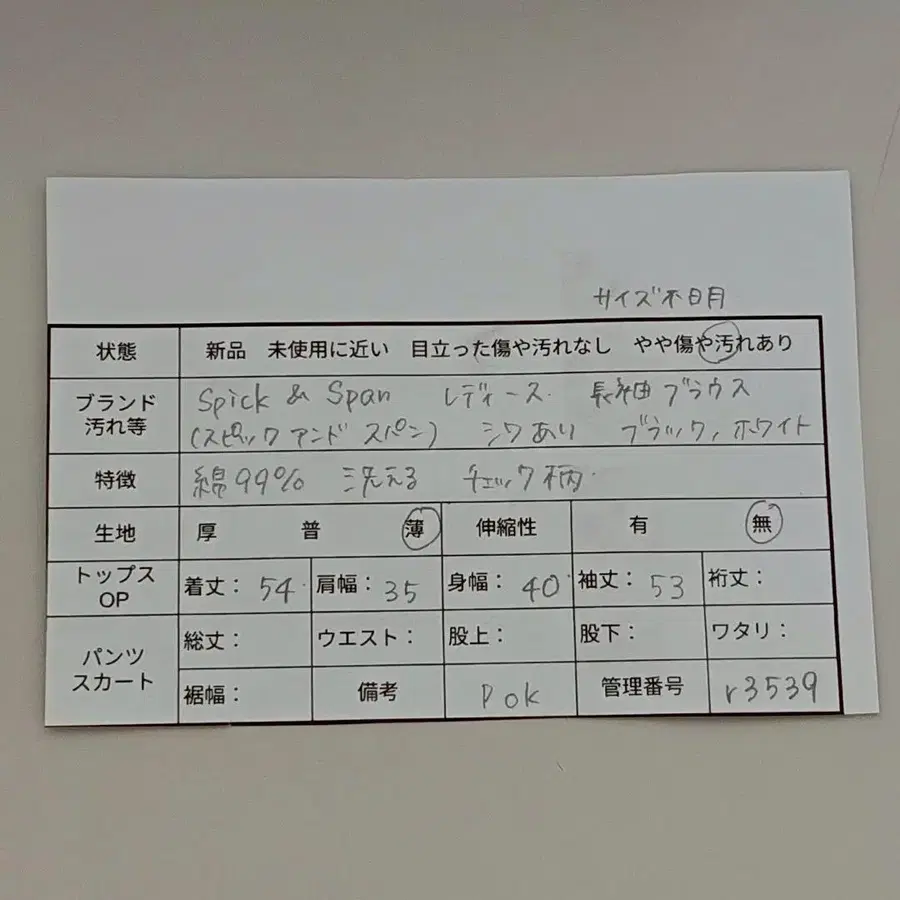 サイズ不明
状態 新品 未使用に近い 目立った傷や汚れなし やや傷や汚れあり
ブランド 汚れ等 Spick & Span レディース 長袖ブラウス
(スピックアンドスパン) シワあり ブラック,ホワイト
特徴 綿99% 洗える チェック柄
生地 厚 普 薄 伸縮性 有 無
トップス OP 着丈: 54 肩幅: 35 身幅: 40 袖丈: 53 裄丈:
パンツ スカート 総丈: ウエスト: 股上: 股下: ワタリ:
裾幅: 備考 Pok 管理番号 r3539